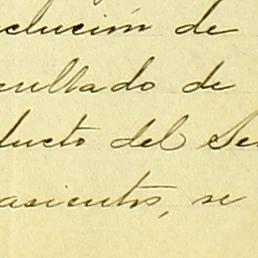 clución de
cultado de
ducto del Se
asientos, se